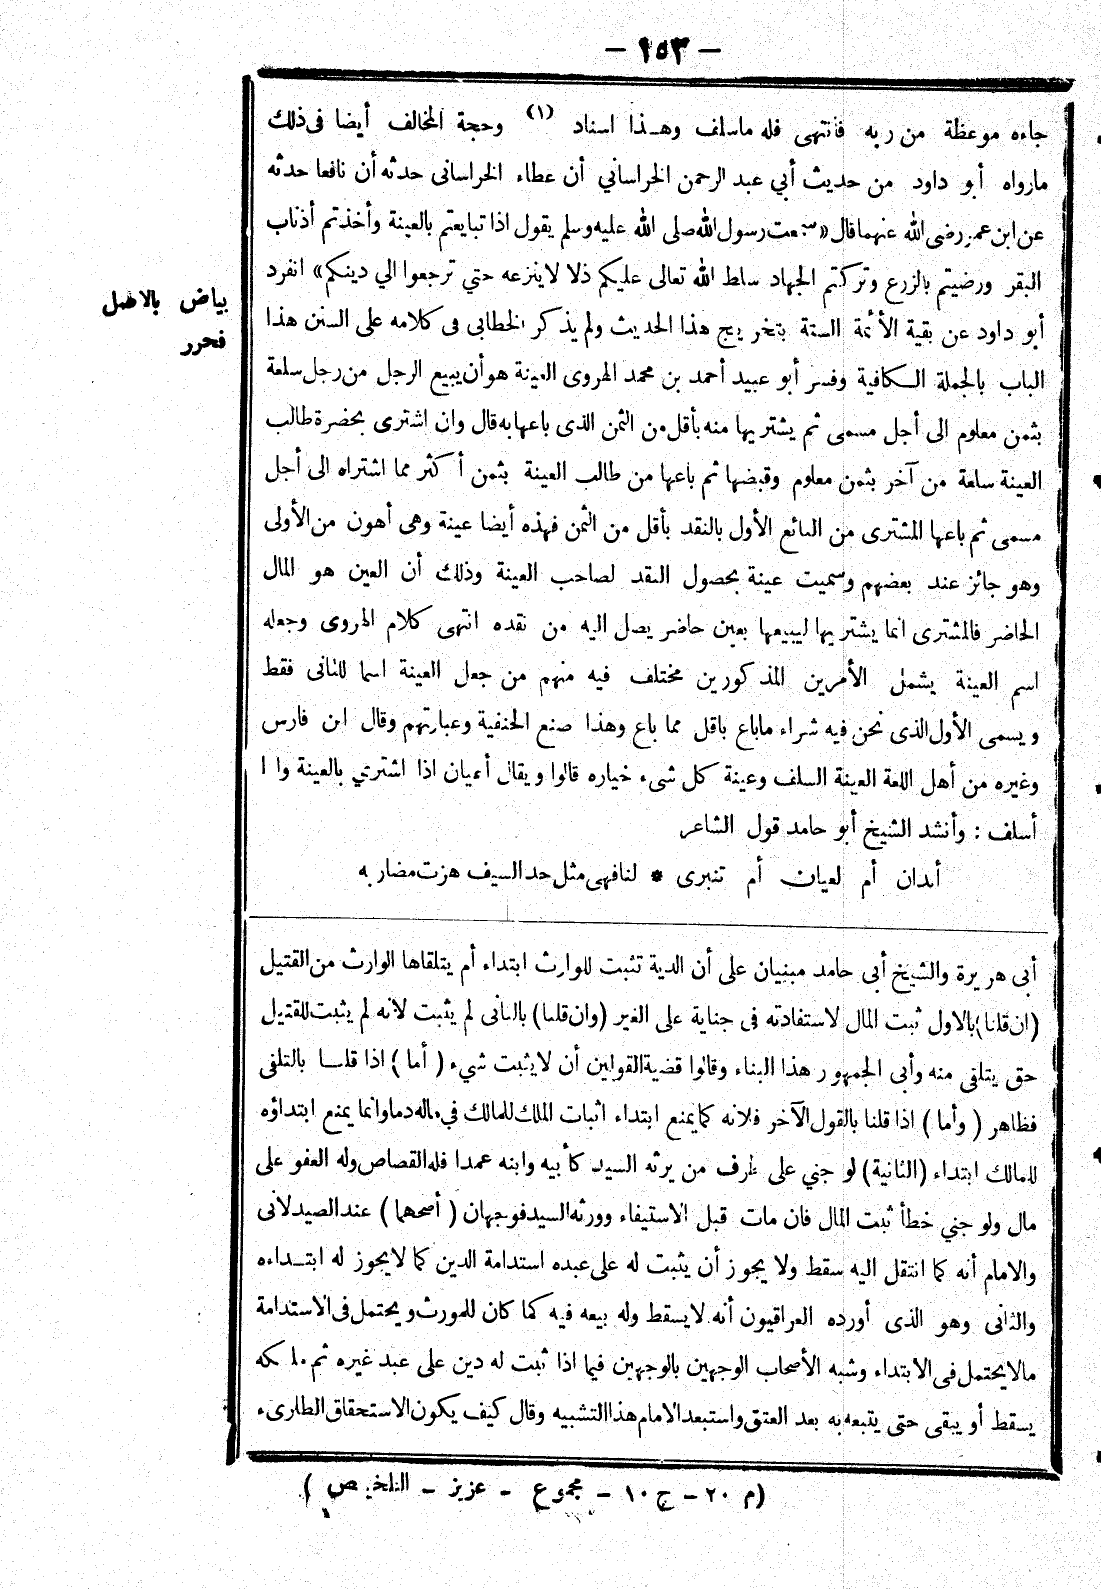 — ١٥٣ —
جاءه موعظة من ربه فانتهى فله ماسلف وهـذا اسناد (١) وحجة المخالف أيضا فى ذلك
مارواه أبو داود من حديث أبي عبد الرحمن الخراساني أن عطاء الخراسانى حدثه أن نافعا حدثه
عن ابن عمر رضى الله عنهما قال «سمعت رسول الله صلى الله عليه وسلم يقول اذا تبايعتم بالعينة وأخذتم أذناب
البقر ورضيتم بالزرع وتركتم الجهاد سلط الله تعالى عليكم ذلا لا ينزعه حتي ترجعوا الي دينكم» انفرد
أبو داود عن بقية الأئمة الستة بتخريج هذا الحديث ولم يذكر الخطابى فى كلامه على السنن هذا
الباب بالجملة الـكافية وفسر أبو عبيد أحمد بن محمد الهروى العينة هو أن يبيع الرجل من رجل سلعة
بثمن معلوم الى أجل مسمى ثم يشتريها منه بأقل من الثمن الذى باعها به قال وان اشترى بحضرة طالب
العينة سلعة من آخر بثمن معلوم وقبضها ثم باعها من طالب العينة بثمن أكثر مما اشتراه الى أجل
مسمى ثم باعها المشترى من البائع الأول بالنقد بأقل من الثمن فهذه أيضا عينة وهى أهون من الأولى
وهو جائز عند بعضهم وسميت عينة بحصول النقد لصاحب العينة وذلك أن العين هو المال
الحاضر فالمشترى انما يشتريها ليبيعها بعين حاضر يصل اليه من نقده انتهى كلام الهروى وجعله
اسم العينة يشمل الأمرين المذكورين مختلف فيه منهم من جعل العينة اسما للثانى فقط
ويسمى الأول الذى نحن فيه شراء ماباع باقل مما باع وهذا صنع الحنفية وعبارتهم وقال ابن فارس
وغيره من أهل اللغة العينة السلف وعينة كل شىء خياره قالوا ويقال أعيان اذا اشتري بالعينة وا ا
أسلف : وأنشد الشيخ أبو حامد قول الشاعر
أندان أم لعيان أم تنبرى * لنافهى مثل حد السيف هزت مضاربه
بياض بالاصل
فحرر
أبى هريرة والشيخ أبى حامد مبنيان على أن الدية تثبت للوارث ابتداء أم يتلقاها الوارث من القتيل
(ان قلنا) بالاول ثبت المال لاستفادته فى جناية على الغير (وان قلنا) بالثانى لم يثبت لانه لم يثبت للقتيل
حق يتلقى منه وأبى الجمهور هذا البناء وقالوا قضية القولين أن لا يثبت شيء (أما) اذا قلنـا بالتلقى
فظاهر (وأما) اذا قلنا بالقول الآخر فلانه كما يمنع ابتداء اثبات الملك للمالك في ماله دما وانما يمنع ابتداؤه
للمالك ابتداء (الثانية) لو جني على طرف من يرثه السيد كأبيه وابنه عمدا فله القصاص وله العفو على
مال ولو جني خطأ ثبت المال فان مات قبل الاستيفاء وورثه السيد فوجهان (أصحهما) عند الصيدلانى
والامام أنه كما انتقل اليه سقط ولا يجوز أن يثبت له على عبده استدامة الدين كما لا يجوز له ابتـداءه
والثانى وهو الذى أورده العراقيون أنه لا يسقط وله بيعه فيه كما كان للمورث ويحتمل فى الاستدامة
مالا يحتمل فى الابتداء وشبه الأصحاب الوجهين بالوجهين فيما اذا ثبت له دين على عبد غيره ثم ملكه
يسقط أو يبقى حتى يتبعه به بعد العتق واستبعد الامام هذا التشبيه وقال كيف يكون الاستحقاق الطارىء
(م ٢٠ – ج ١٠ – مجموع – عزيز – التلخيص)